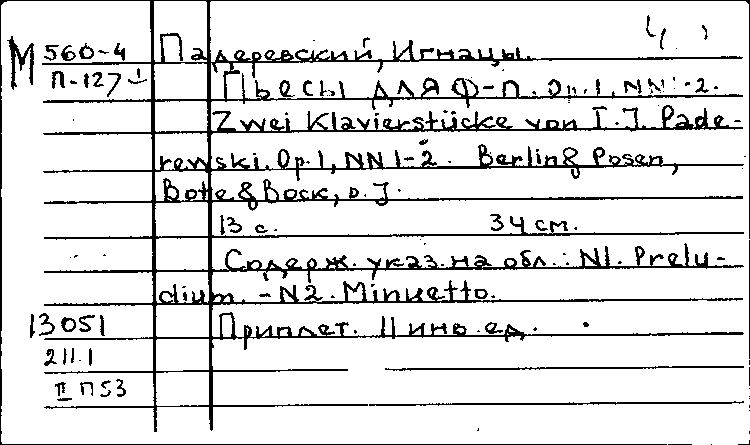 М 560-4 Падеревский, Игнацы.
П-127 Пьесы для ф-п. Op.1, NN1-2.
Zwei Klavierstücke von I. J. Pade-
rewski. Op.1, NN1-2. Berlin & Posen,
Bote & Bock, s. J.
13 с. 34 см.
Содерж. указ. на обл.: N1. Prelu-
dium. - N2. Minuetto.
13051 Приплет. 11 инв. ед.
211.1
II П53